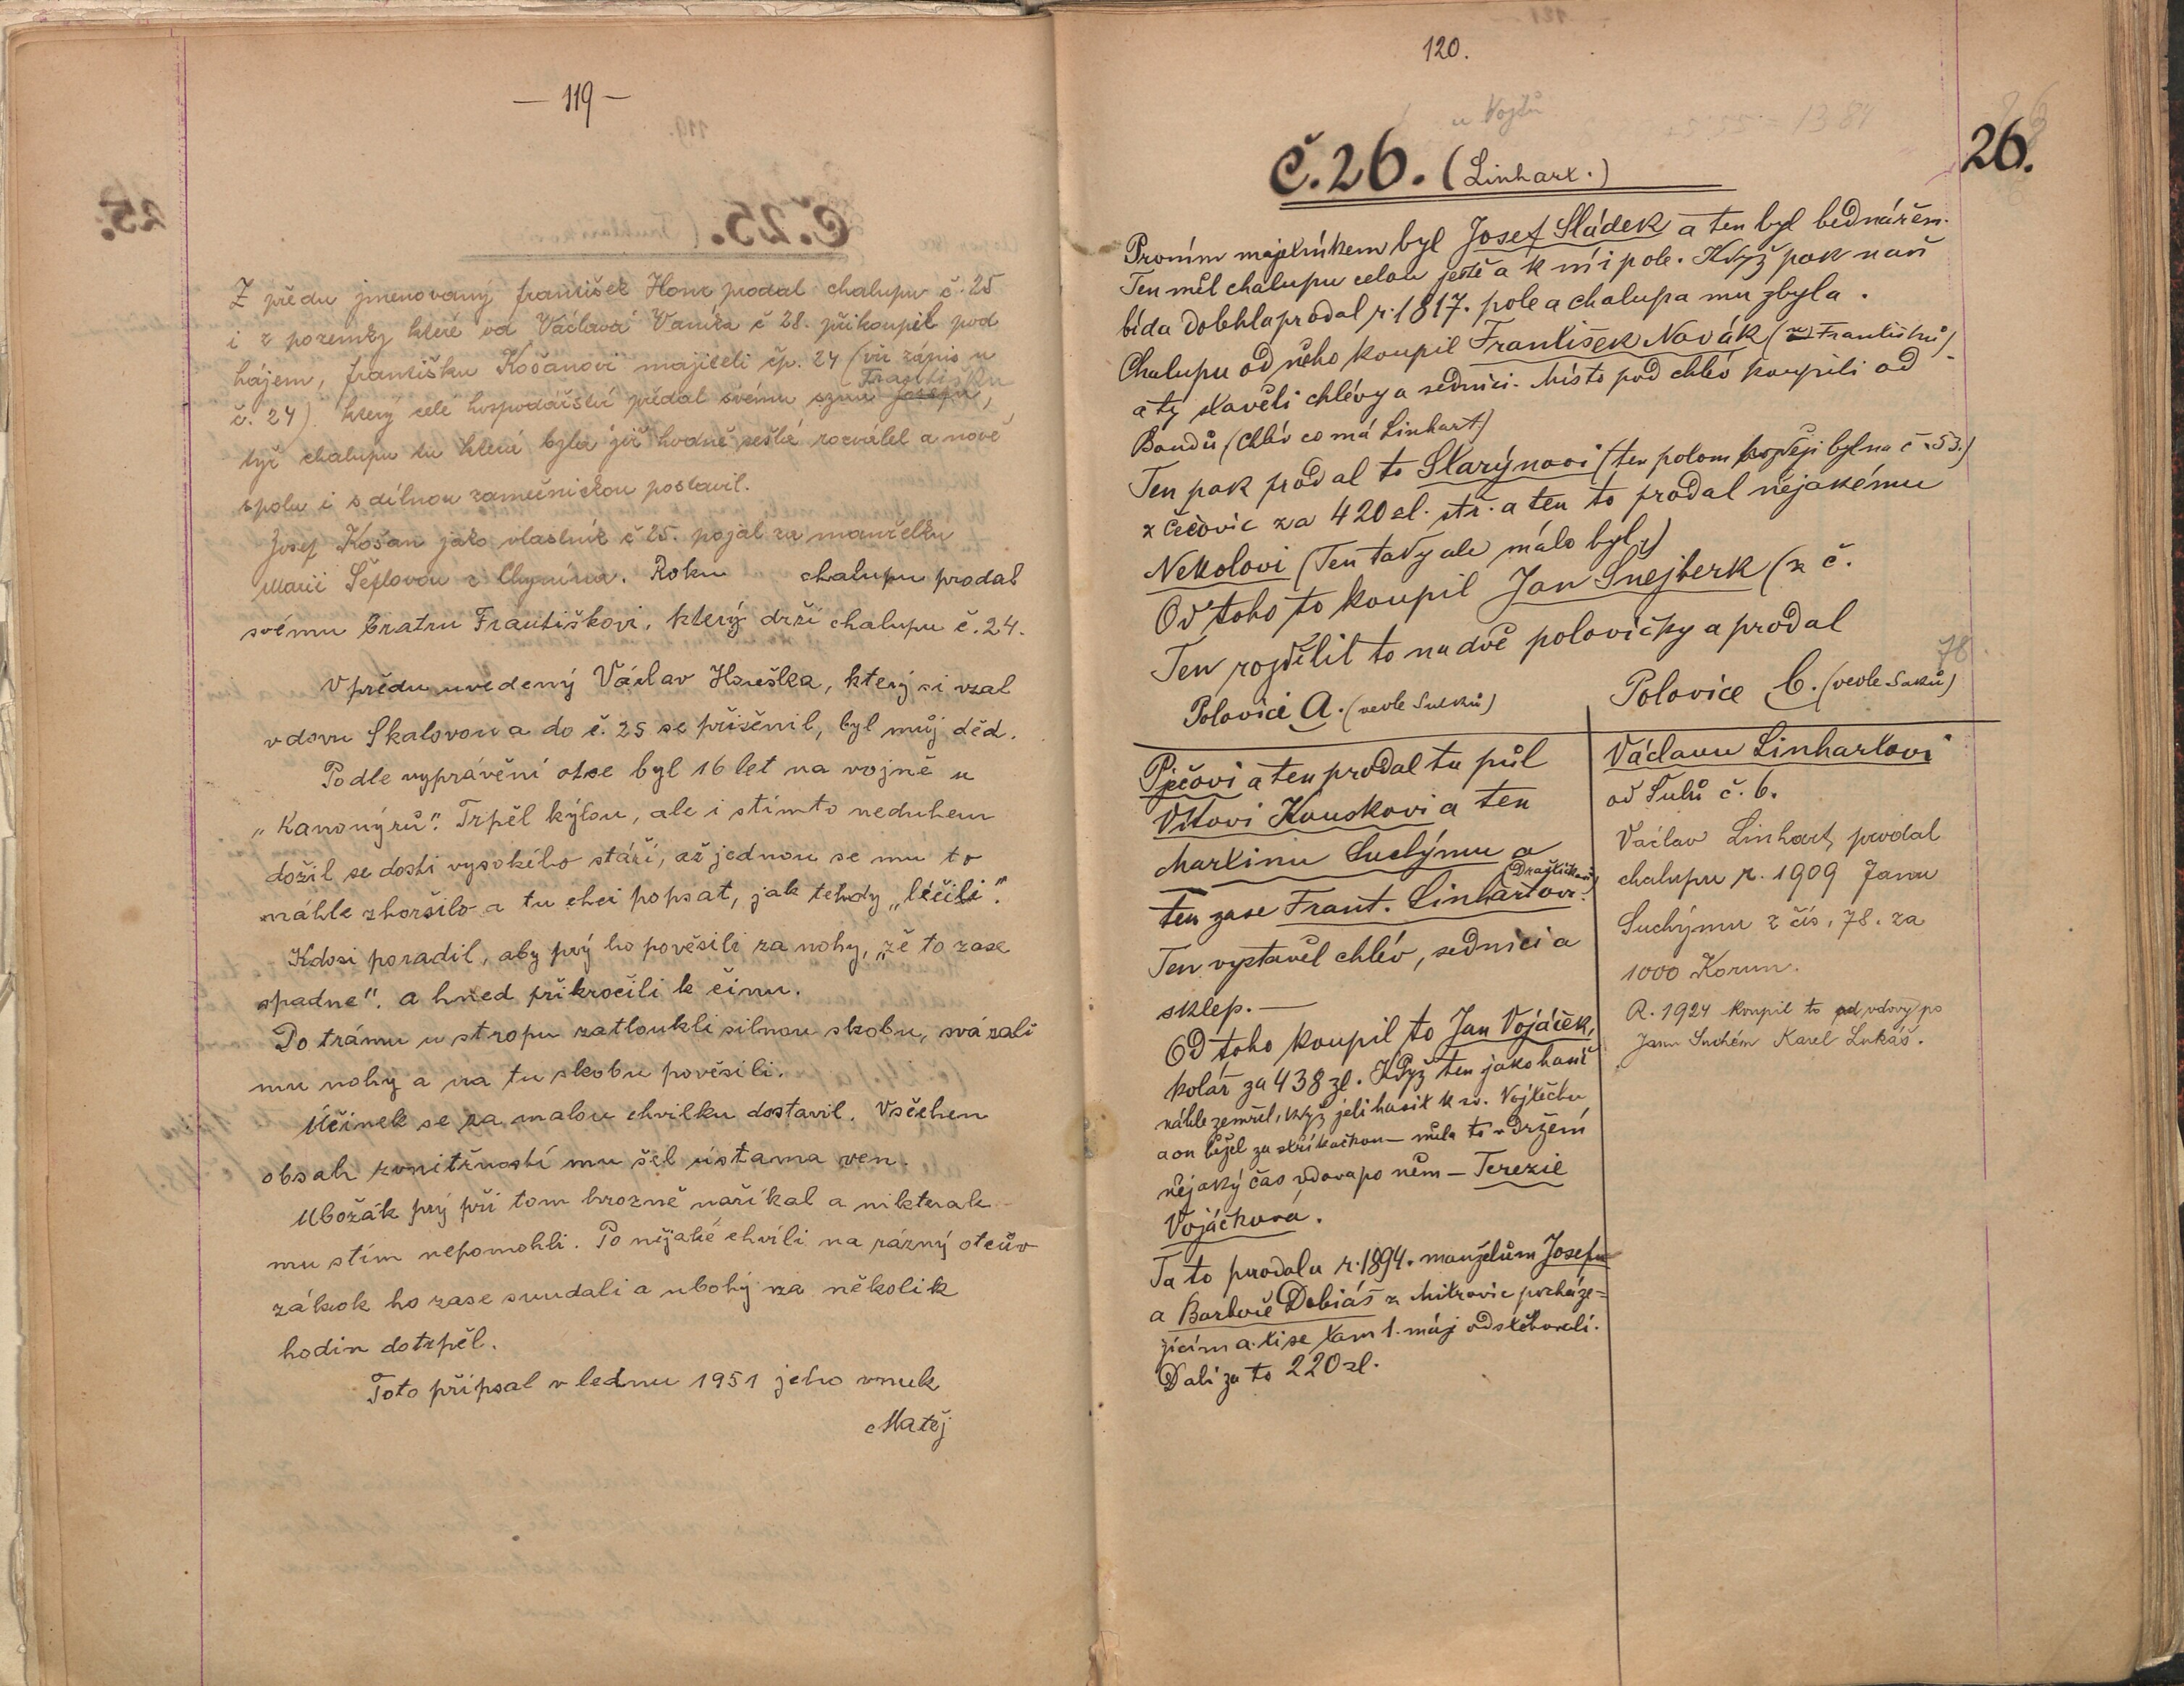 — 119 —
Z předu jmenovaný František Honz prodal chalupu č. 25
i z pozemky které od Václava Vaníka č 28. přikoupil pod
hájem, františku Košanovi majiteli čp. 24 (viz zápis u
č. 24). který celé hospodářství předal svému synu Josefu, Františku
týž chalupu tu která byla již hodně sešlá rozválel a nově
spolu i s dílnou zámečnickou postavil.
Josef Košan jako vlastník č 25. pojal za manželku
Marii Šeflovou z Chynína. Roku chalupu prodal
svému bratru Františkovi, který drží chalupu č. 24.
V předu uvedený Václav Houška, který si vzal
vdovu Skalovou a do č. 25 se přiženil, byl můj děd.
Podle vyprávění otce byl 16 let na vojně u
„Kanonýrů". Trpěl kýlou, ale i stímto neduhem
dožil se dosti vysokého stáří, až jednou se mu to
náhle zhoršilo a tu chci popsat, jak tehdy „léčili".
Kdosi poradil, aby prý ho pověsili za nohy, „že to zase
spadne". a hned přikročili k činu.
Do trámu u stropu zatloukli silnou skobu, svázali
mu nohy a na tu skobu pověsili.
Účinek se za malou chvilku dostavil. Všechen
obsah zvnitřností mu šel ústama ven.
Ubožák prý při tom hrozně naříkal a nikterak
mu stím nepomohli. Po nějaké chvíli na rázný otcův
zákrok ho zase sundali a ubohý za několik
hodin dotrpěl.
Toto připsal v lednu 1951 jeho vnuk
Matěj
120.
u Vojtů
Č. 26. (Linhart.)
26.
Prvním majetníkem byl Josef Sládek a ten byl bednářem.
Ten měl chalupu celou ještě a k ní i pole. Když pak naň
bída dolehla prodal r. 1817. pole a chalupa mu zbyla.
Chalupu od něho koupil František Novák (z Františků)
a ty stavěli chlévy a sednici. Místo pod chlév koupili od
Bandů (Chlév co má Linhart)
Ten pak prodal to Starýnovi (ten potom později byl na č. 53.)
z Čečovic za 420 zl. stř. a ten to prodal nějakému
Nekolovi (Ten tady ale málo byl.)
Od toho to koupil Jan Snejberk (z č.
Ten rozdělil to na dvě polovičky a prodal
78
Polovici A. (vedle Sulků)
Pječovi a ten prodal tu půl
Vítovi Kouskovi a ten
Martinu Suchýmu a
ten zase Frant. Linhartovi. (Dražičkovi)
Ten vystavěl chlév, sednici a
sklep. —
Od toho koupil to Jan Vojáček,
kolář za 438 zl. Když ten jako hasič
náhle zemřel, když jeli hasit k sv. Vojtěchu
a on běžel za stříkačkou — měla to v držení
nějaký čas vdova po něm — Terezie
Vojáčková.
Ta to prodala r. 1894. manželům Josefu
a Barboře Dobiáš z Mitrovic pocháze=
zícím a ti se tam 1. máj odstěhovali.
Dali za to 220 zl.
Polovice B. (vedle Saků)
Václavu Linhartovi
od Sulů č. 6.
Václav Linhart, prodal
chalupu r. 1909 Janu
Suchýmu z čís, 78. za
1000 Korun.
R. 1924 koupil to od vdovy po
Janu Suchém Karel Lukáš.